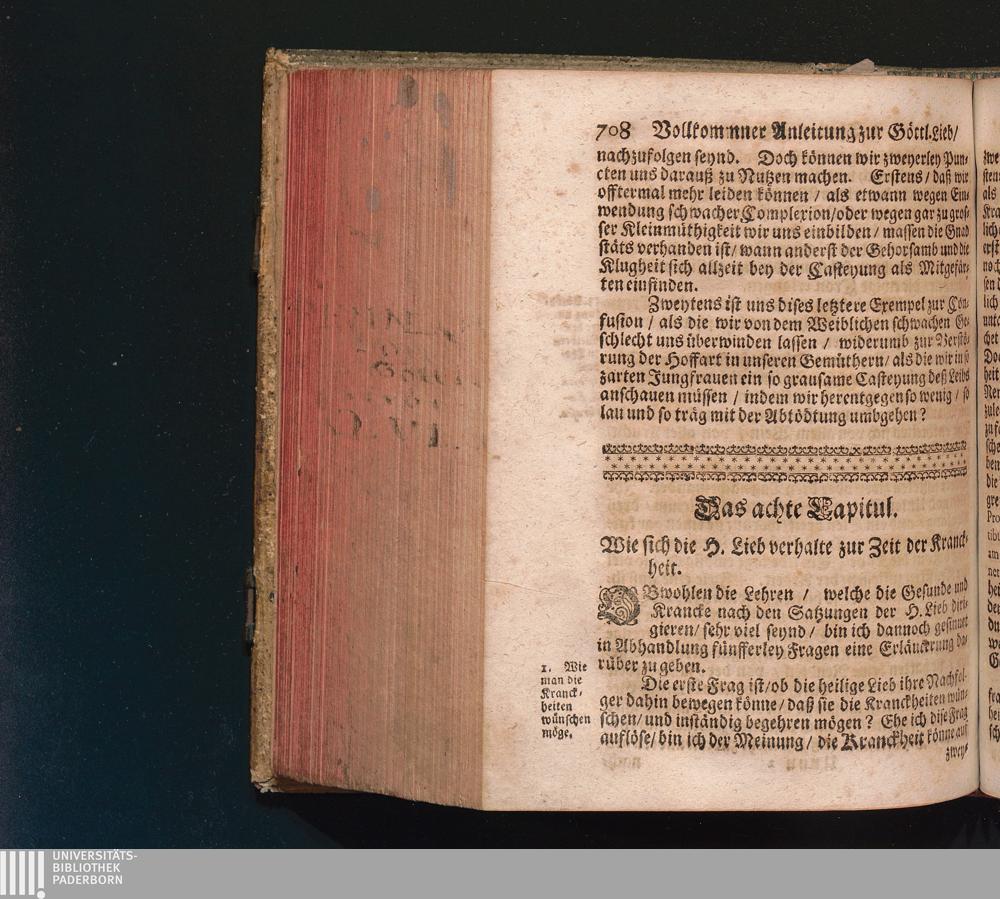 708 Vollkommner Anleitung zur Göttl. Lieb/
nachzufolgen seynd. Doch können wir zweyerley Pun-
cten uns darauß zu Nutzen machen. Erstens / daß wir
offtermal mehr leiden können / als etwann wegen Ein-
wendung schwacher Complexion/oder wegen gar zu gros-
ser Kleinmüthigkeit wir uns einbilden / massen die Gnad
stäts verhanden ist/ wann anderst der Gehorsamb und die
Klugheit sich allzeit bey der Casteyung als Mitgefär-
ten einfinden.
Zweytens ist uns dises letztere Exempel zur Con-
fusion / als die wir von dem Weiblichen schwachen Ge-
schlecht uns überwinden lassen / widerumb zur Verstö-
rung der Hoffart in unseren Gemüthern/ als die wir in so
zarten Jungfrauen ein so grausame Casteyung deß Leibs
anschauen müssen / indem wir herentgegen so wenig / so
lau und so träg mit der Abtödtung umbgehen?
Das achte Capitul.
Wie sich die H. Lieb verhalte zur Zeit der Kranck-
heit.
OBwohlen die Lehren / welche die Gesunde und
Krancke nach den Satzungen der H. Lieb diri-
gieren/ sehr viel seynd / bin ich dannoch gesinnet
in Abhandlung fünfferley Fragen eine Erläuterung da-
rüber zu geben.
1. Wie
man die
Kranck-
heiten
wünschen
möge.
Die erste Frag ist/ob die heilige Lieb ihre Nachfol-
ger dahin bewegen könne/ daß sie die Kranckheiten wün-
schen/ und inständig begehren mögen? Ehe ich dise Frag
auflöse/ bin ich der Meinung / die Kranckheit könne auf
zwey-
UNIVERSITÄTS-
BIBLIOTHEK
PADERBORN